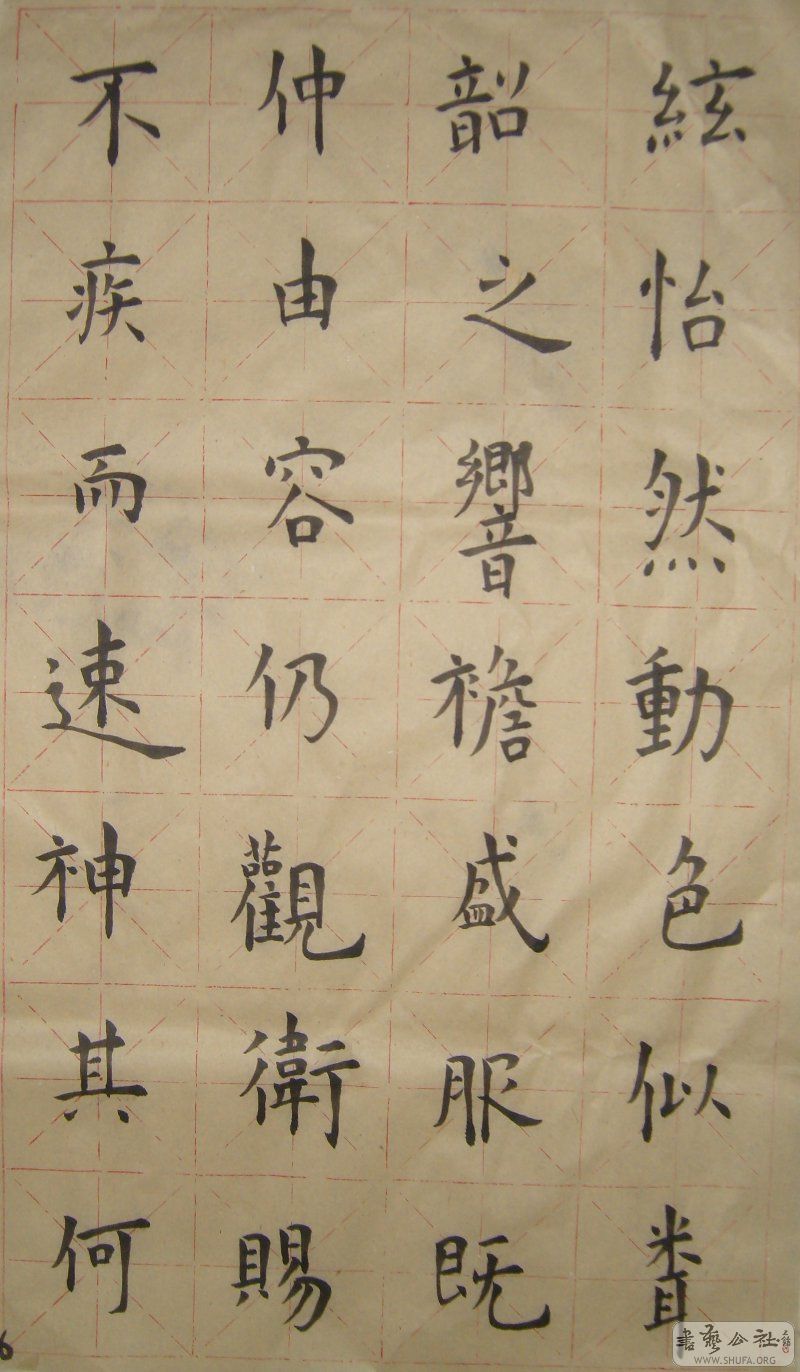 絃怡然動色似
韶之響襜盛服既
仲由容仍觀衛賜
不疾而速神其何
6
書藝公社
WWW.SHUFA.ORG